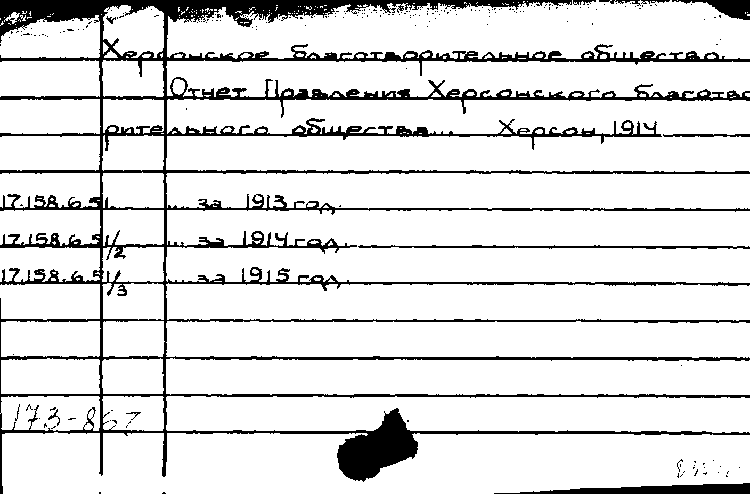 Херсонское благотворительное общество.
Отчет Правления Херсонского благотво
рительного общества... Херсон, 1914
17.158.6.51. ... за 1913 год.
17.158.6.51/2 ... за 1914 год.
17.158.6.51/3 ... за 1915 год.
173-867